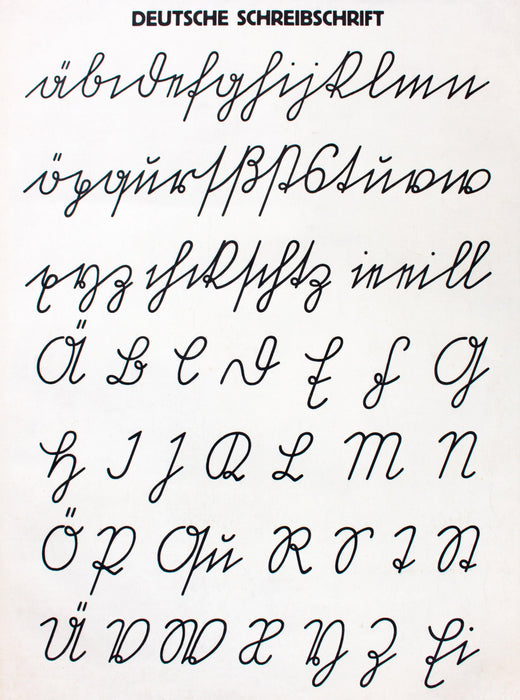 DEUTSCHE SCHREIBSCHRIFT
äbcdefghijklmn
öpqŭrſßſtstŭvw
xyz chckſchtz ieeill
Ä B C D E F G
H I J K L M N
Ö P Qŭ R S T St
Ü V W X Y Z Ei